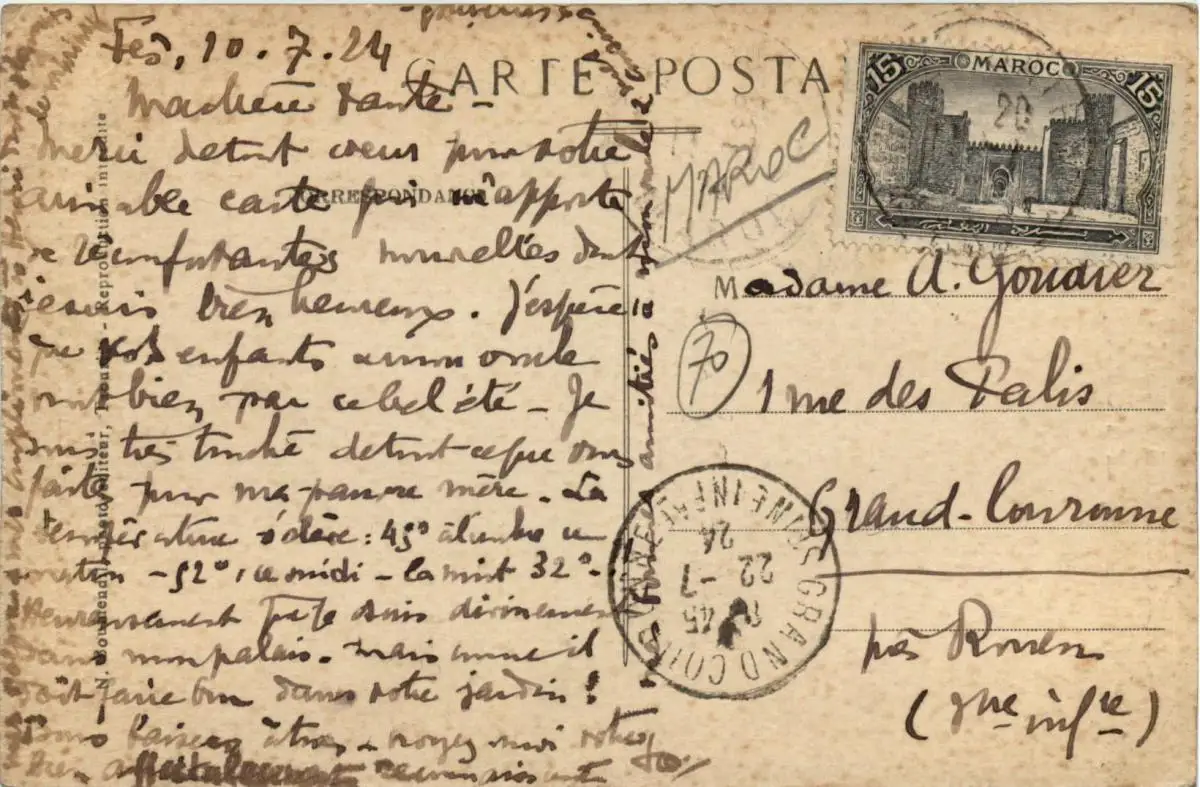 Fès, 10.7.24
CARTE POSTA
Ma chère tante -
Merci de tout cœur pour votre
aimable carte qui m'apporte
CORRESPONDANCE
de réconfortantes nouvelles dont
je suis bien heureux. J'espère
que vos enfants auront
bien par ce bel été - Je
suis très touché de tout ce que vous
faites pour ma pauvre mère. La
température s'élève : 45° à l'ombre ce
matin - 52° à midi - la nuit 32° -
Heureusement que je suis divinement
dans mon palais. Mais comme il
doit faire bon dans votre jardin !
Bons baisers à tous - croyez moi votre
bien affectueusement reconnaissant
mes amitiés à mon oncle
Editeur, - Reproduction interdite
MAROC
15
15
MAROC
20
Madame A. Goudier
70
1 rue des Palis
Grand-Couronne
près Rouen
(Sne infre)
GRAND COURONNE
SEINE INFRE
45
22 -7
24